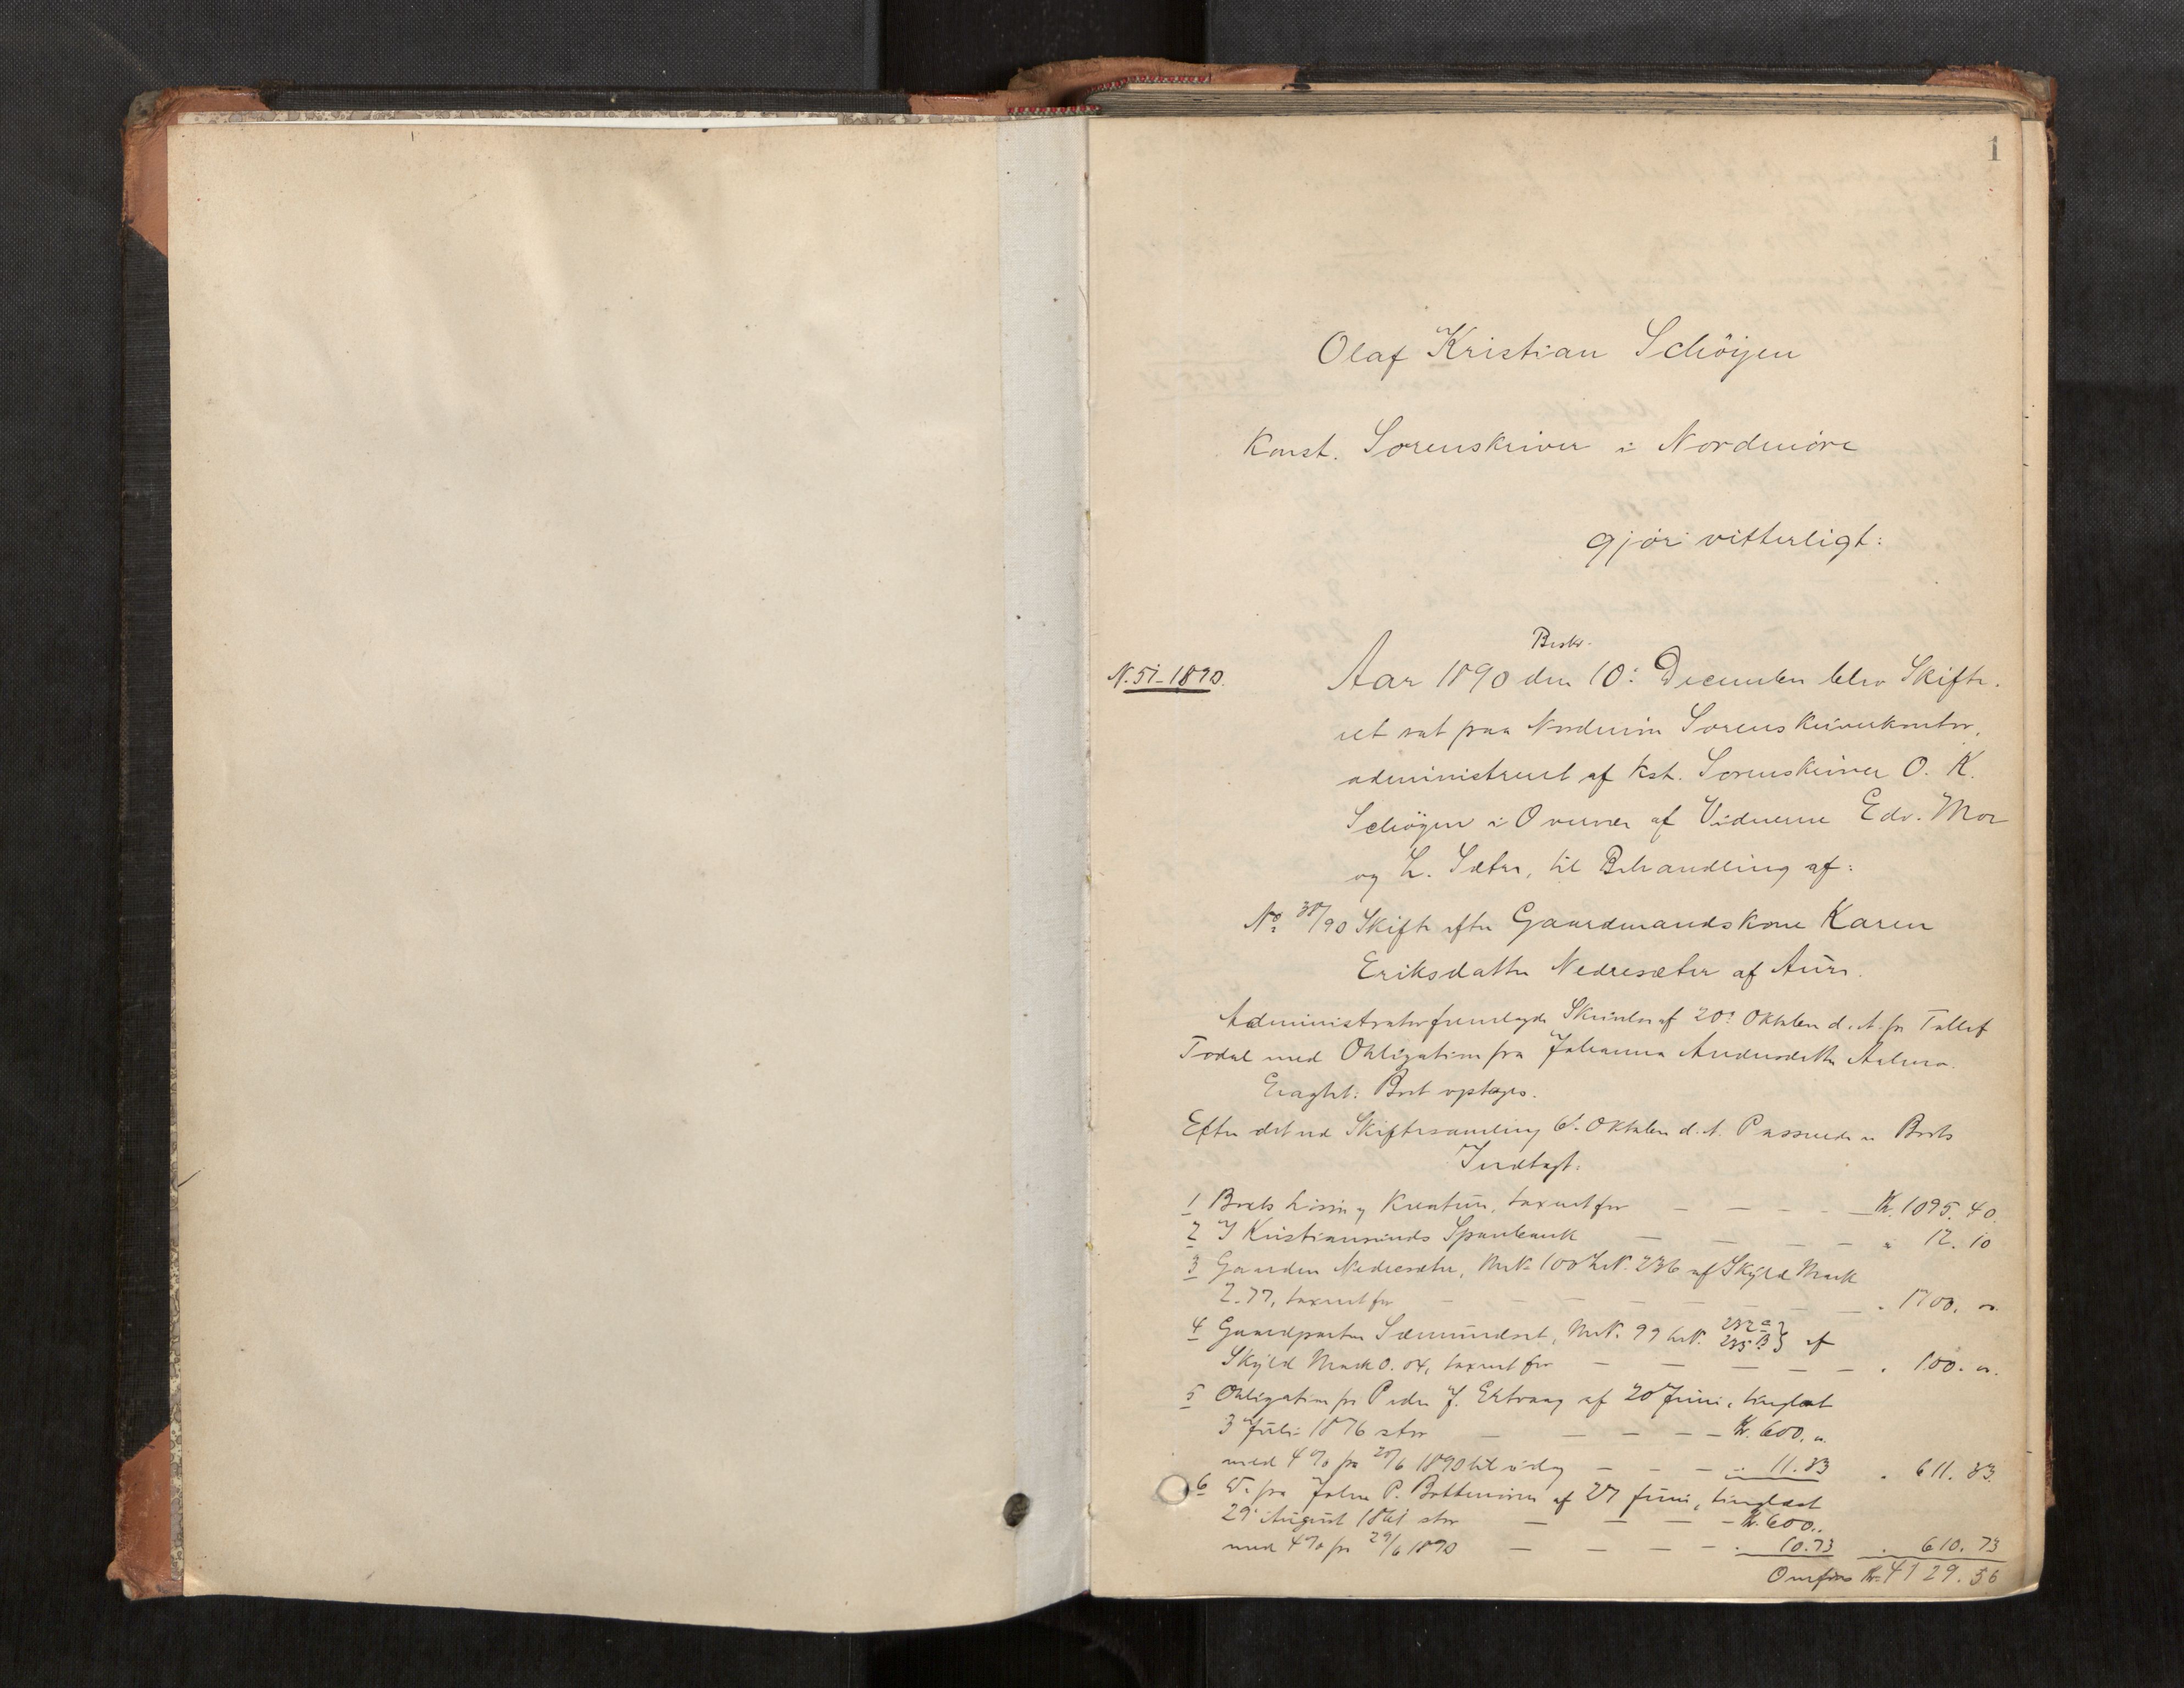 1
Olaf Kristian Schöyen
Konst. Sorenskriver i Nordmöre
gjör vitterligt:
Beskr.
N. 51-1890.
Aar 1890 den 10: December blev Skifte-
ret sat paa Nordmör Sorenskriverkontor,
administreret af kst. Sorenskriver O. K.
Schöyen i Overvær af Vidnerne Edv. Moe
og L. Sæter, til Behandling af:
No. 38/90 Skifte efter Gaardmandskone Karen
Eriksdatter Nedresæter af Aure.
Administrator fremlagde Skrivelse af 20: Oktober d. A. fra Tollef
Todal med Obligation fra Johanna Andersdatter
Eragtet: Boet optages.
Efter det ved Skiftesamling 6. Oktober d. A. Passerede er Boets
Indtægt:
1 Boets Lösöre og Kreature, taxeret for — — — — Kr. 1095. 40.
2 I Kristianssunds Sparebank — — — — " 12. 10
3 Gaarden Nedresæter, M.N. 100 L.N. 236 af Skyld Mark
2.77, taxeret for — — — — — — " 1700. "
4 Gaardparten Sæmundset, M.N. 99 L.N. 232a 235B } af
Skyld Mark 0.04, taxeret for — — — — — " 100. "
5 Obligation fra Peder J. Ertvaag af 20 Juni, tinglæst
3 Juli 1876 stor — — — — — Kr. 600. "
med 4% fra 20/6 1890 til idag — — — " 11.33 " 611. 33.
6 Do. fra Johan P. af 27 Juni, tinglæst
29 August 1881 stor — — — — Kr. 600. "
med 4% fra 29/6 1890 — — — — " 10.73 " 610. 73
Overföres Kr. 4129. 56